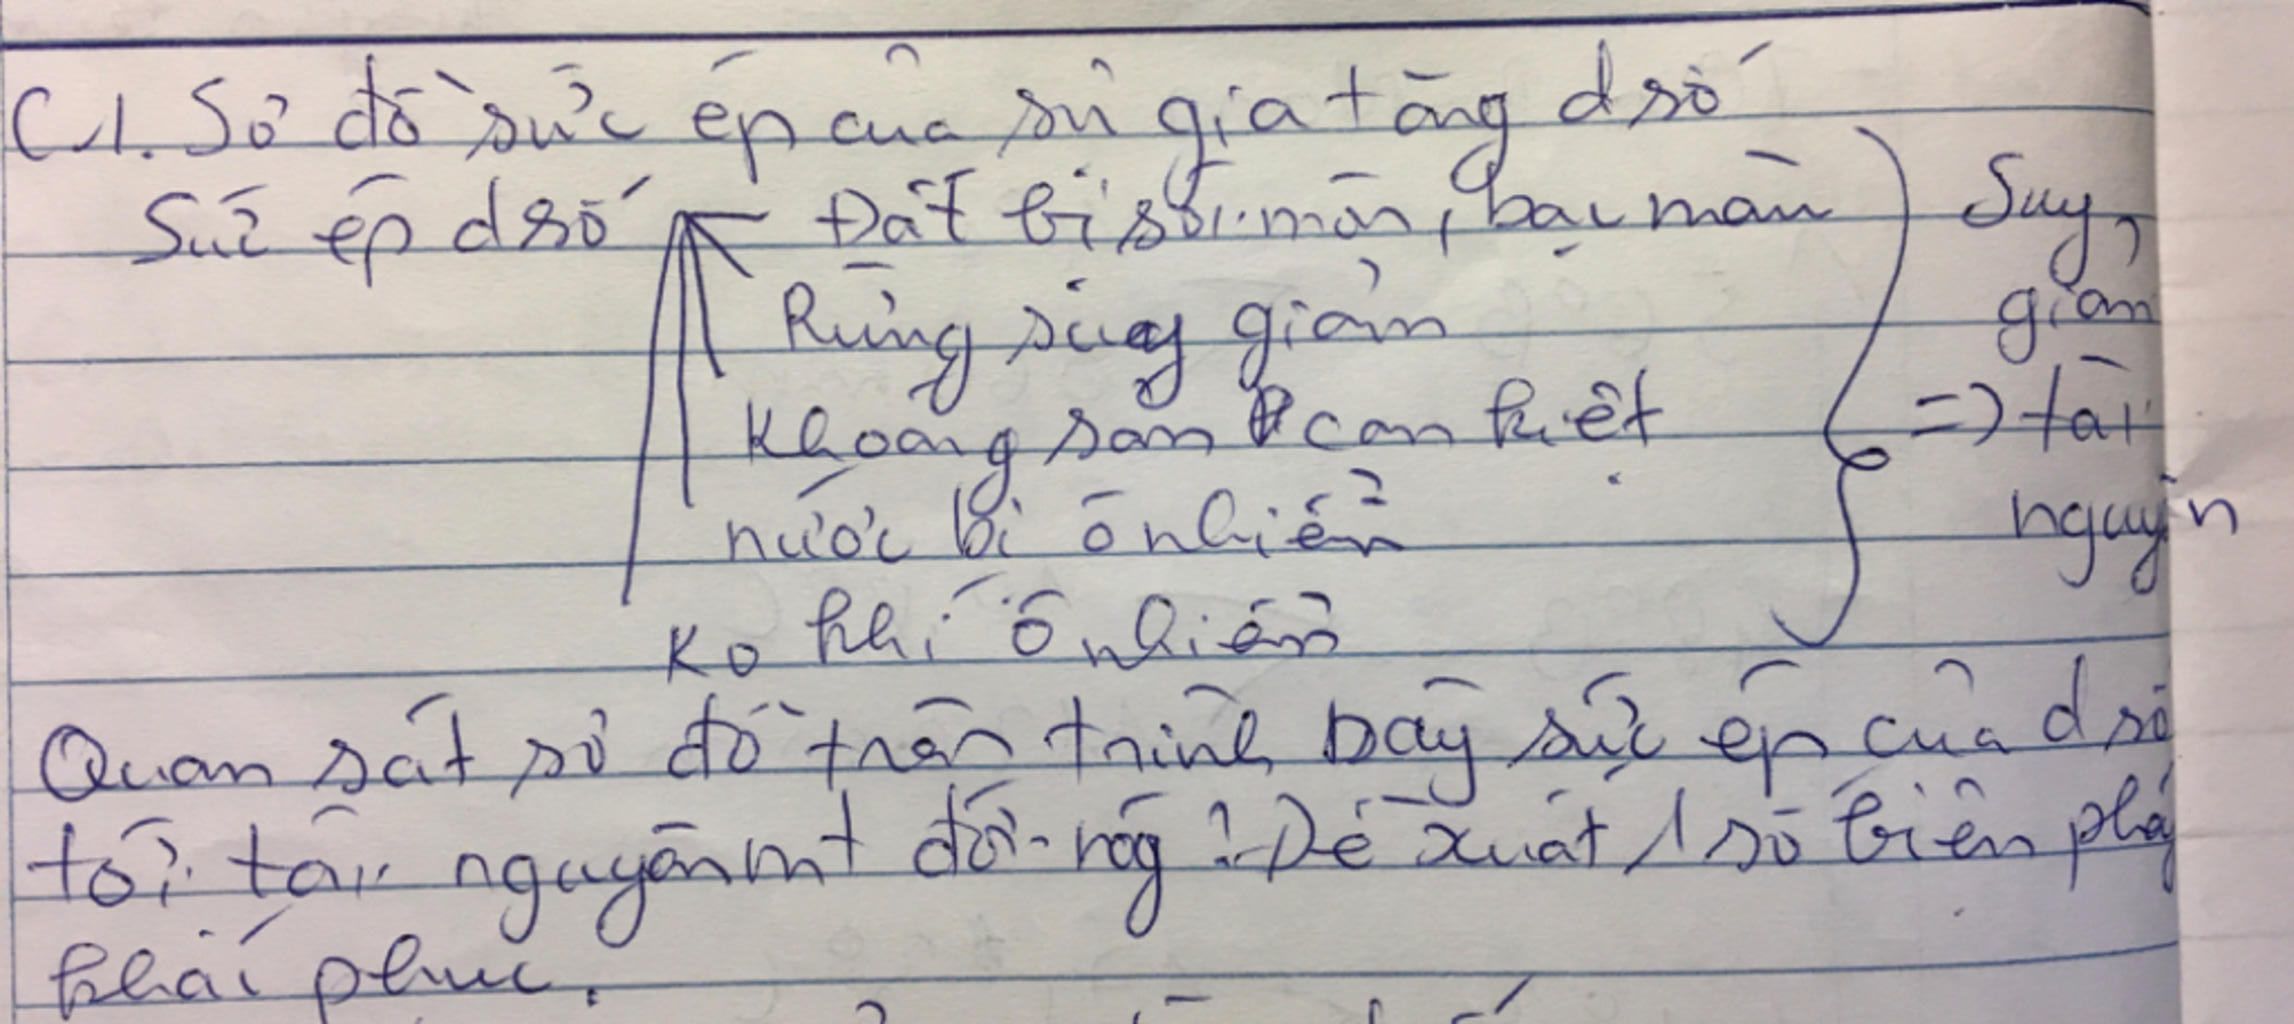 C1. Sơ đồ sức ép của sự gia tăng dsố
Sức ép dsố Đất bị sói mòn, bạc màu
Rừng suy giảm
Khoáng sản cạn kiệt
nước bị ô nhiễm
Ko khí ô nhiễm
Suy
giảm
=> tài
nguyên
Quan sát sơ đồ trên trình bày sức ép của dsố
tới tài nguyên mt đới nóg? Đề xuất 1 số biện phá
khắc phục.